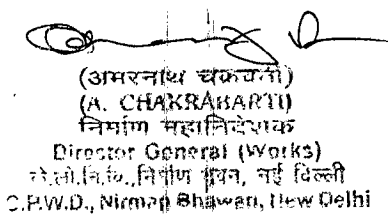 (अमरनाथ चक्रवर्ती)
(A. CHAKRABARTI)
निर्माण महानिदेशक
Director General (Works)
के.लो.नि.वि.,निर्माण भवन, नई दिल्ली
C.P.W.D., Nirman Bhawan, New Delhi